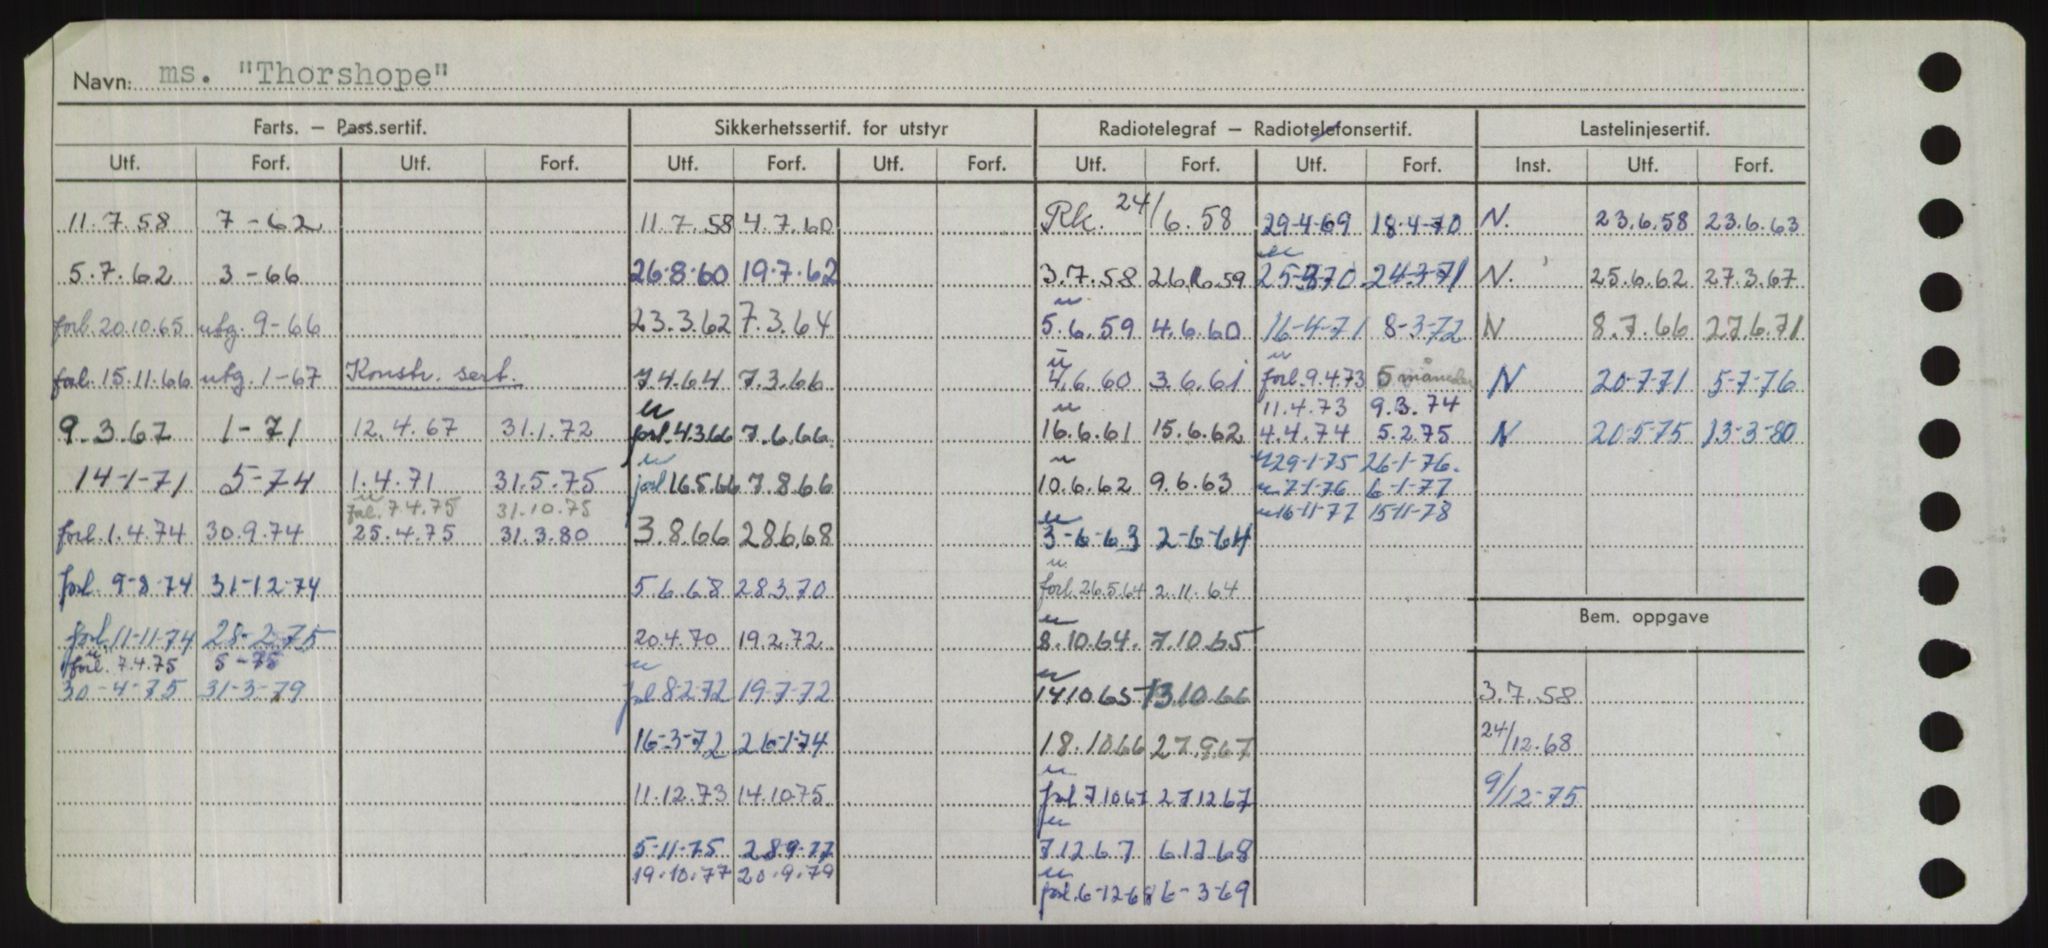 Navn: ms. "Thorshope"
Farts. – Pass.sertif. Sikkerhetssertif. for utstyr Radiotelegraf – Radiotelefonsertif. Lastelinjesertif.
Utf. Forf. Utf. Forf. Utf. Forf. Utf. Forf. Utf. Forf. Utf. Forf. Inst. Utf. Forf.
11.7.58 7-62 11.7.58 4.7.60 Rk. 24/6.58 29-4-69 18-4-70 N. 23.6.58 23.6.63
5.7.62 3-66 26-8-60 19.7.62 3.7.58 26.6.59 24-3-71 N. 25.6.62 27.3.67
forl. 20.10.65 utg. 9-66 23.3.62 7.3.64 5.6.59 4.6.60 16-4-71 8-3-72 N 8.7.66 27.6.71
forl. 15.11.66 utg. 1-67 Konstr. sert. 7.4.64 7.3.66 4.6.60 3.6.61 forl. 9.4.73 5 måneder N 20-7-71 5-7-76
11.4.73 9.3.74
9.3.67 1-71 12.4.67 31.1.72 forl. 4.3.66 7.6.66 16.6.61 15.6.62 4.4.74 5.2.75 N 20-5-75 13-3-80
29-1-75 26-1-76
14-1-71 5-74 1.4.71 31.5.75 forl. 16.5.66 7.8.66 10.6.62 9.6.63 7-1-76 6-1-77
forl. 7.4.75 31.10.75 16-11-77 15-11-78
forl. 1.4.74 30.9.74 25.4.75 31.3.80 3.8.66 28.6.68 3-6-63 2-6-64
forl. 9-8-74 31-12-74 5.6.68 28.3.70 forl. 26.5.64 2.11.64
Bem. oppgave
forl. 11-11-74 28-2-75 20.4.70 19.2.72 8.10.64. 7.10.65
forl. 7.4.75 5-75
30-4-75 31-3-79 forl. 8-2-72 19-7-72 14.10.65 13.10.66 3.7.58
16-3-72 26-1-74 18.10.66 27.9.67 24/12.68
11.12.73 14.10.75 forl. 7.10.67 27.12.67 9/12-75
5-11-75 28-9-77 7.12.67 6.12.68
19.10.77 20.9.79
forl. 6-12-68 6-3-69